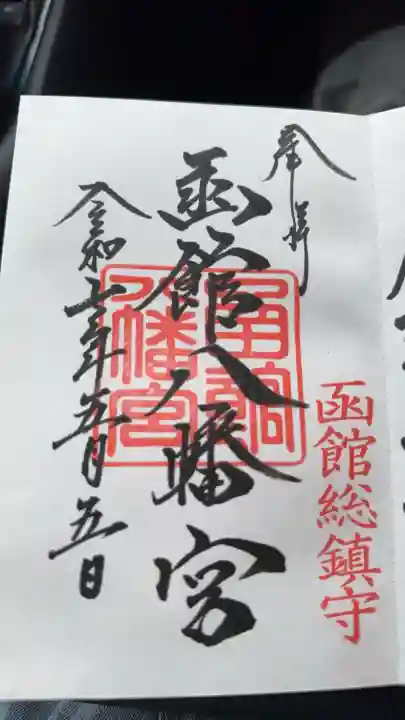 奉拝
函館総鎮守
函館八幡宮
函館
八幡宮
令和 年五月五日